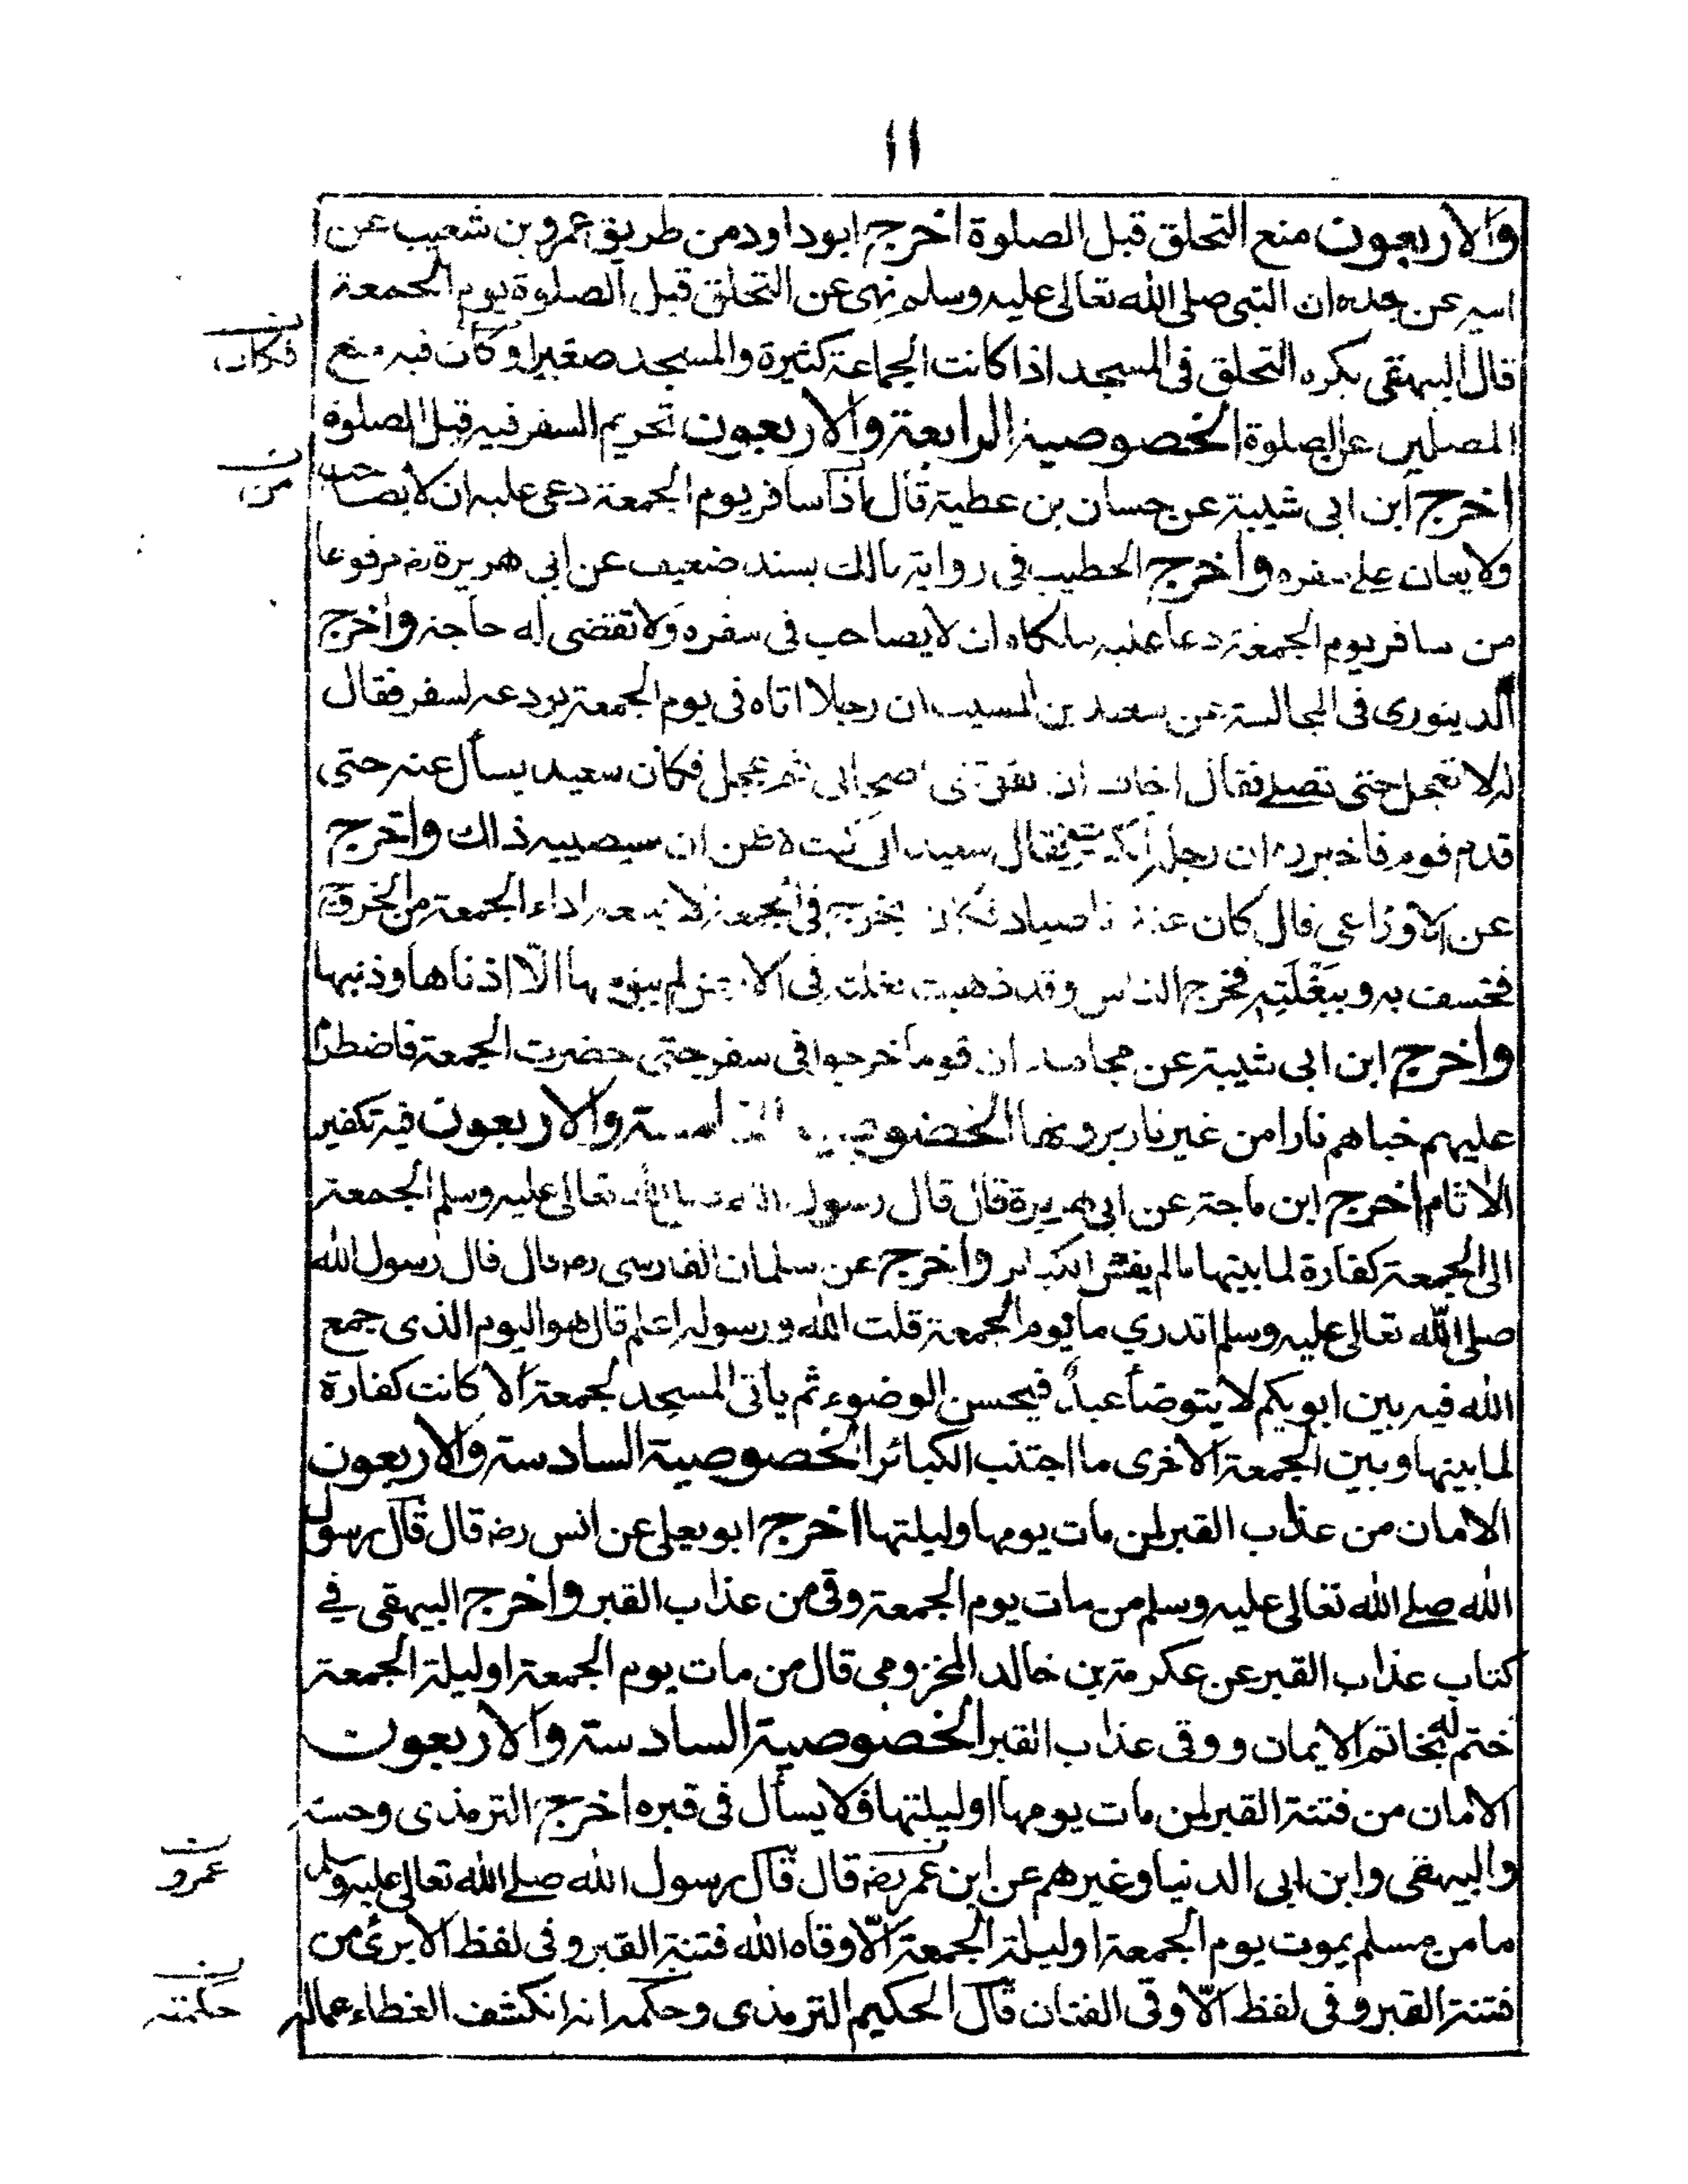 ١١
والاربعون منع التحلق قبل الصلوة اخرج ابوداود من طريق عمرو بن شعيب عن
ابيه عن جده ان النبى صلى الله تعالى عليه وسلم نهى عن التحلق قبل الصلوة يوم الجمعة
قال البيهقى يكره التحلق فى المسجد اذا كانت الجماعة كثيرة والمسجد صغيرا وكان فيه منع
فكان
المصلين عن الصلوة الخصوصية الرابعة والاربعون تحريم السفر فيه قبل الصلوة
اخرج ابن ابى شيبة عن حسان بن عطية قال اذا سافر يوم الجمعة دعى عليه ان لا يصاحب
من
ولا يعان على سفره واخرج الخطيب فى رواية مالك بسند ضعيف عن ابي هريرة رضه مرفوعا
من سافر يوم الجمعة دعا عليه ملكاه ان لا يصاحب فى سفره ولا تقضى له حاجة واخرج
الدينورى فى المجالسة عن سعيد بن المسيب ان رجلا اتاه فى يوم الجمعة يردعه لسفر فقال
له لا تعجل حتى تصلے فقال اخاف ان تفوتنى اصحابى ثم عجل فكان سعيد يسأل عنه حتى
قدم قوم فاخبروه ان رجله فقال سعيد انى كنت لاظن ان سيصيبه ذلك واخرج
عن الاوزاعي قال كان عندنا صياد فكان يخرج فى الجمعة لا يمنعه اداء الجمعة من الخروج
فخسف به وببغلته فخرج الناس وقد ذهبت بغلته فى الارض لم يبق منها الّا اذناها وذنبها
واخرج ابن ابى شيبة عن مجاهد ان قوما خرجوا فى سفر حتى حضرت الجمعة فاضطرم
عليهم خباهم نارا من غير نار يرونها الخصوصية الخامسة والاربعون فيه تكفير
الاثام اخرج ابن ماجة عن ابى هريرة قال قال رسول الله صلى الله تعالى عليه وسلم الجمعة
الى الجمعة كفارة لما بينها ما لم يغش الكبائر واخرج عن سلمان الفارسى رضه قال قال رسول الله
صلى الله تعالى عليه وسلم اتدري ما يوم الجمعة قلت الله ورسوله اعلم قال هو اليوم الذى جمع
الله فيه بين ابويكم لا يتوضأ عبدٌ فيحسن الوضوء ثم يأتى المسجد لجمعة الا كانت كفارة
لما بينها وبين الجمعة الاخرى ما اجتنب الكبائر الخصوصية السادسة والاربعون
الامان من عذاب القبر لمن مات يومها وليلتها اخرج ابو يعلى عن انس رضه قال قال رسول
الله صلے الله تعالى عليه وسلم من مات يوم الجمعة وقى من عذاب القبر واخرج البيهقى في
كتاب عذاب القبر عن عكرمة بن خالد المخزومى قال من مات يوم الجمعة او ليلة الجمعة
ختم له بخاتم الايمان ووقى عذاب القبر الخصوصية السادسة والاربعون
الامان من فتنة القبر لمن مات يومها او ليلتها فلا يسأل فى قبره اخرج الترمذى وحسنه
والبيهقى وابن ابى الدنيا وغيرهم عن ابن عمر رضه قال قال رسول الله صلے الله تعالى عليه وسلم
عمرو
ما من مسلم يموت يوم الجمعة او ليلة الجمعة الّا وقاه الله فتنة القبر وفى لفظ الا برئ من
فتنة القبر وفى لفظ الّا وقى الفتان قال الحكيم الترمذى وحكمه انه انكشف الغطاء عما له
حكمته